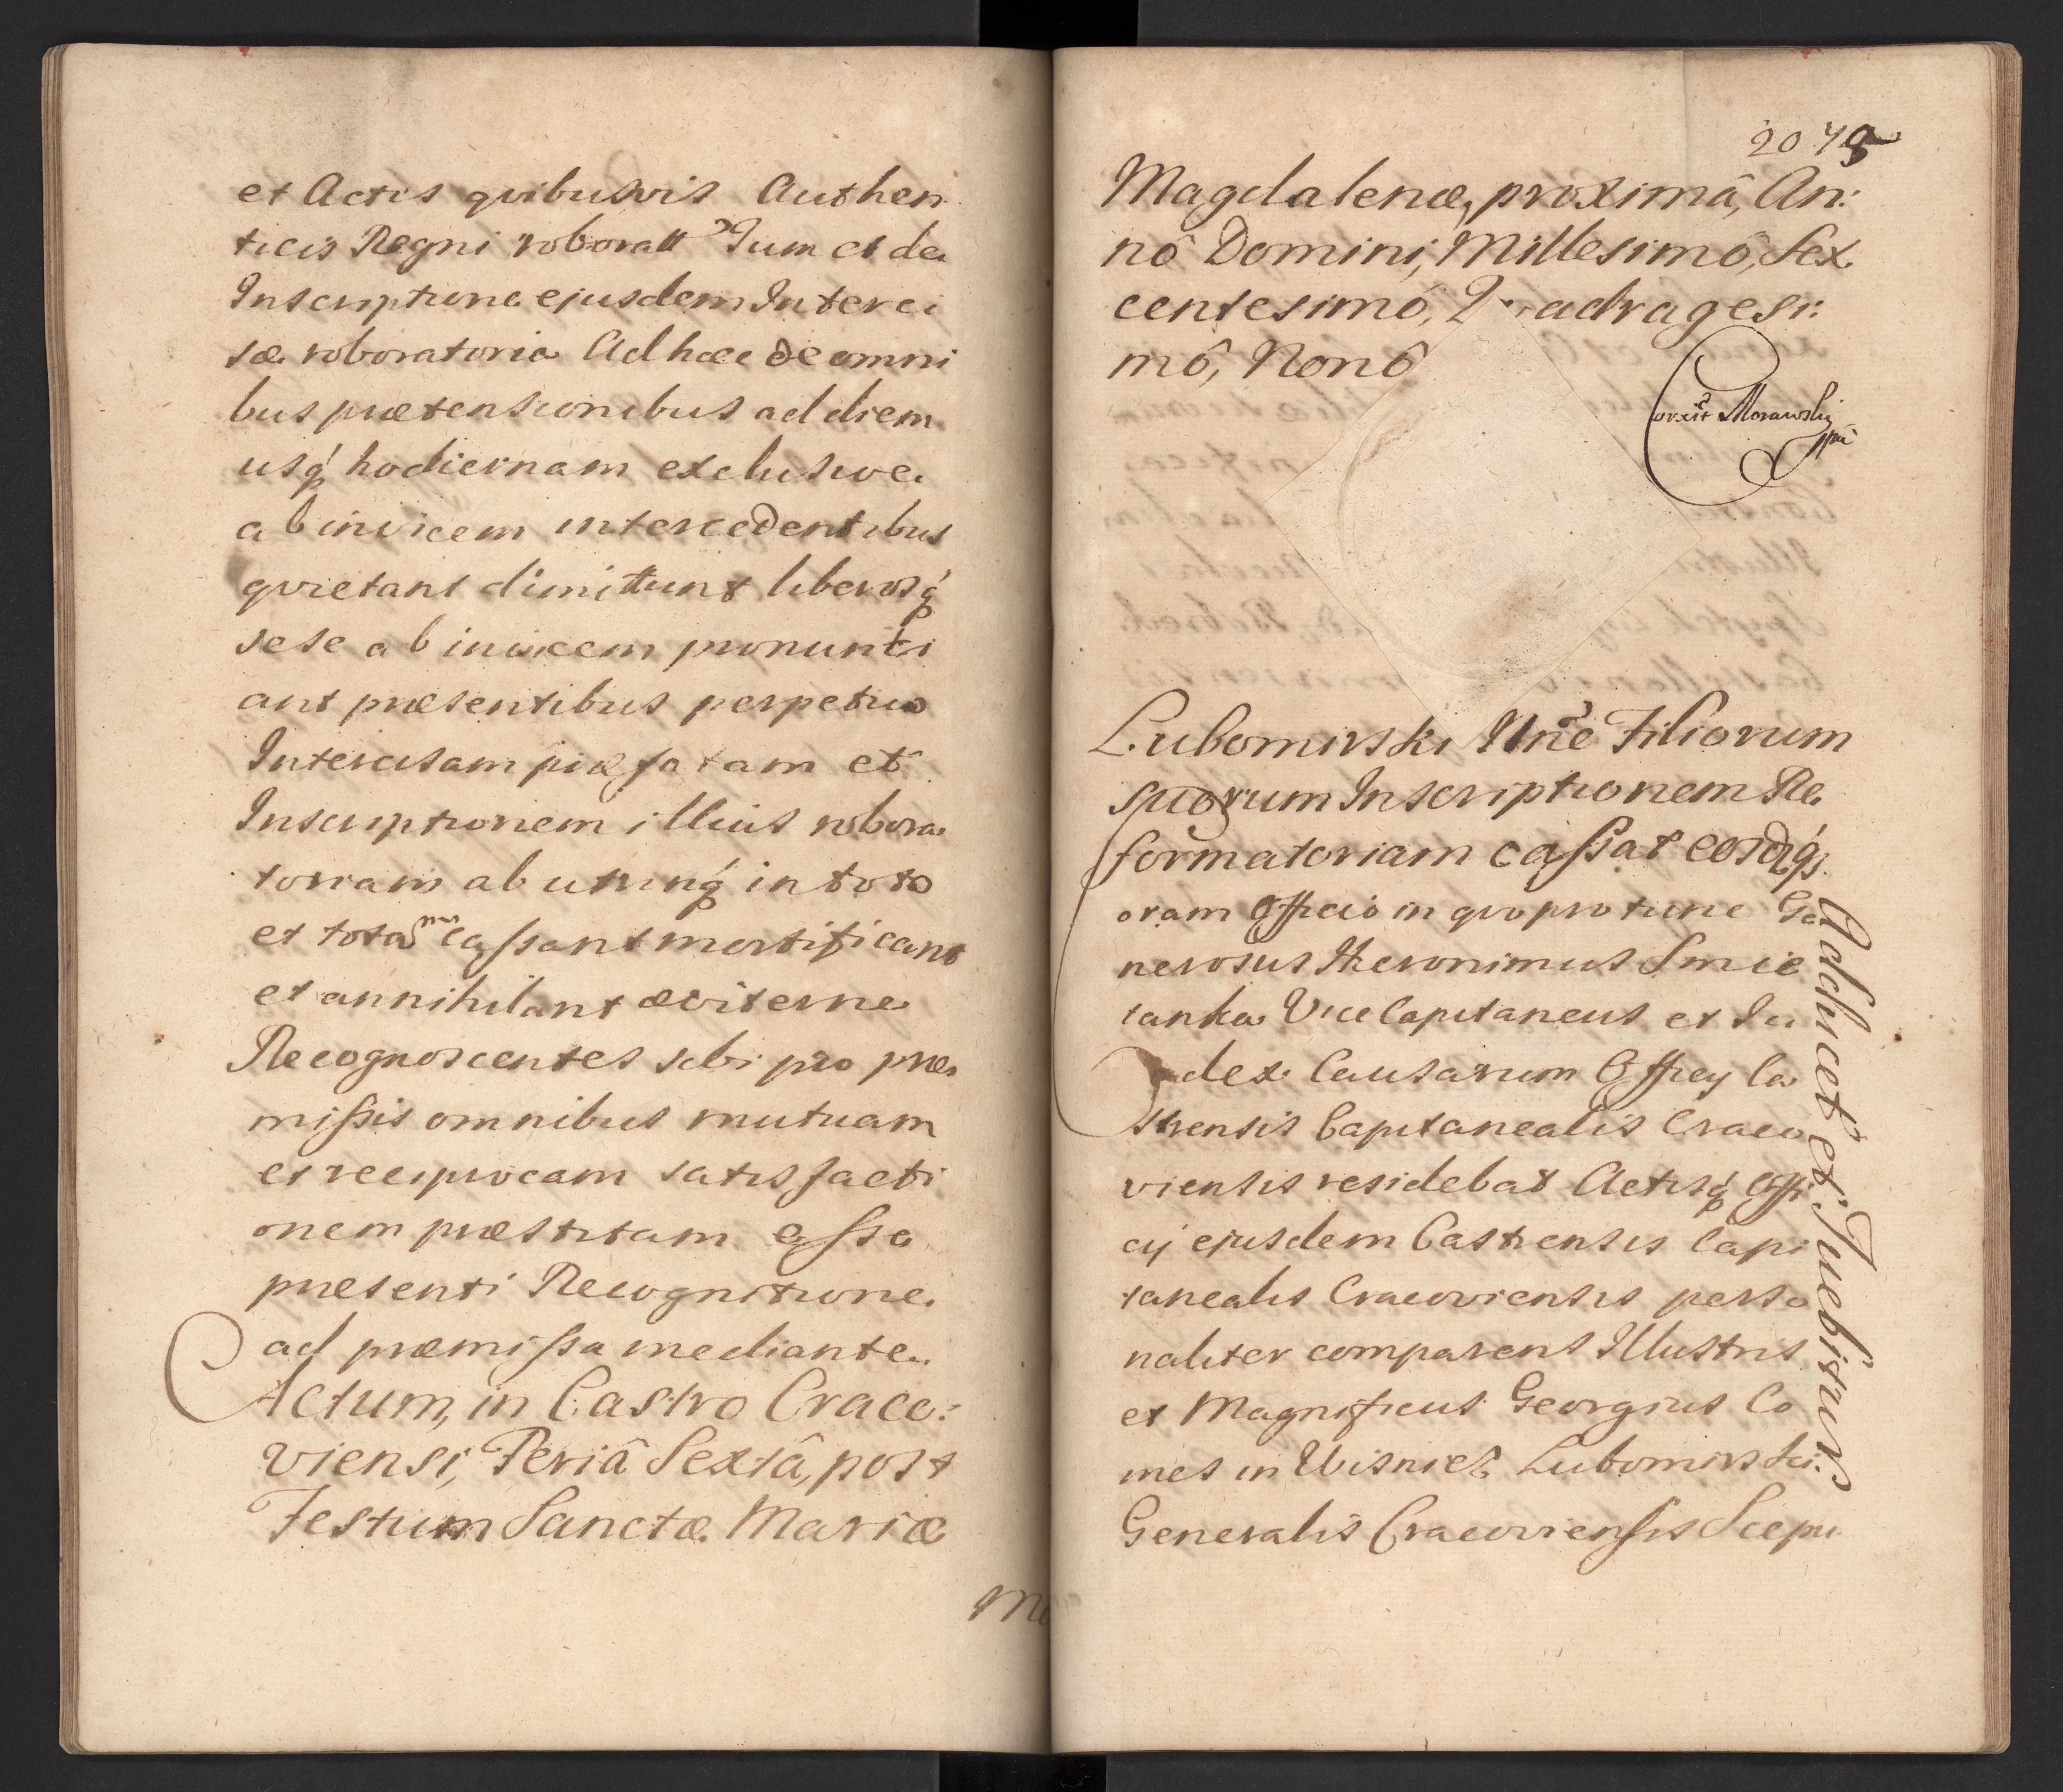 et Actis qvibusvis Authen
ticis Regni roboratt Tum et de
Inscriptione ejusdem Interci
sæ roboratoria Ad hæc de omni
bus prætensionibus ad diem
usq́ hodiernam exclusive
ab invicem intercedentibus
qvietant dimittunt liberosq́
sese ab invicem pronunti
ant præsentibus perpetuo
Intercisam præfatam et
Inscriptionem illius robora
toriam ab utrinq́ in toto
et tota cassant mortificant
et annihilant æviterne
Recognoscentes sibi pro præ
missis omnibus mutuam
et reciprocam satisfacti
onem præstitam esse
præsenti Recognitione
ad præmissa mediante
Actum, in Castro Craco:
viensi, Feriâ Sextâ, post
Festum Sanctæ Mariæ
2079
Magdalenæ, proximâ, An:
nô Domini, Millesimô, Sex
centesimô, Quadragesi:
mô, Nonô
Correxit Morawski
mp
Lubomirski Nne Filiorum
suorum Inscriptionem Re
formatoriam cassat eosdqs
oram Officio in qvo pro tunc Ge
nerosus Hieronimus Smie
tanka Vice Capitaneus et Iu
dex Causarum Officy Ca
strensis Capitanealis Craco
viensis residebat Actisq́ Offi
cij ejusdem Castrensis Capi
tanealis Cracoviensis perso
naliter comparens Illustris
et Magnificus Georgius Co
mes in Wisnicz Lubomirski
Generalis Cracoviensis Scepu
Adhuc et Inebistus